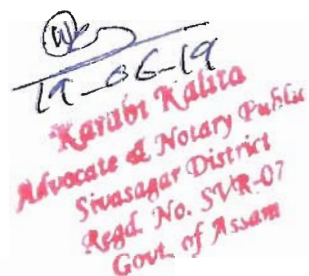 19-06-19
Karabi Kalita
Advocate & Notary Public
Sivasagar District
Regd. No. SVR-07
Govt. of Assam